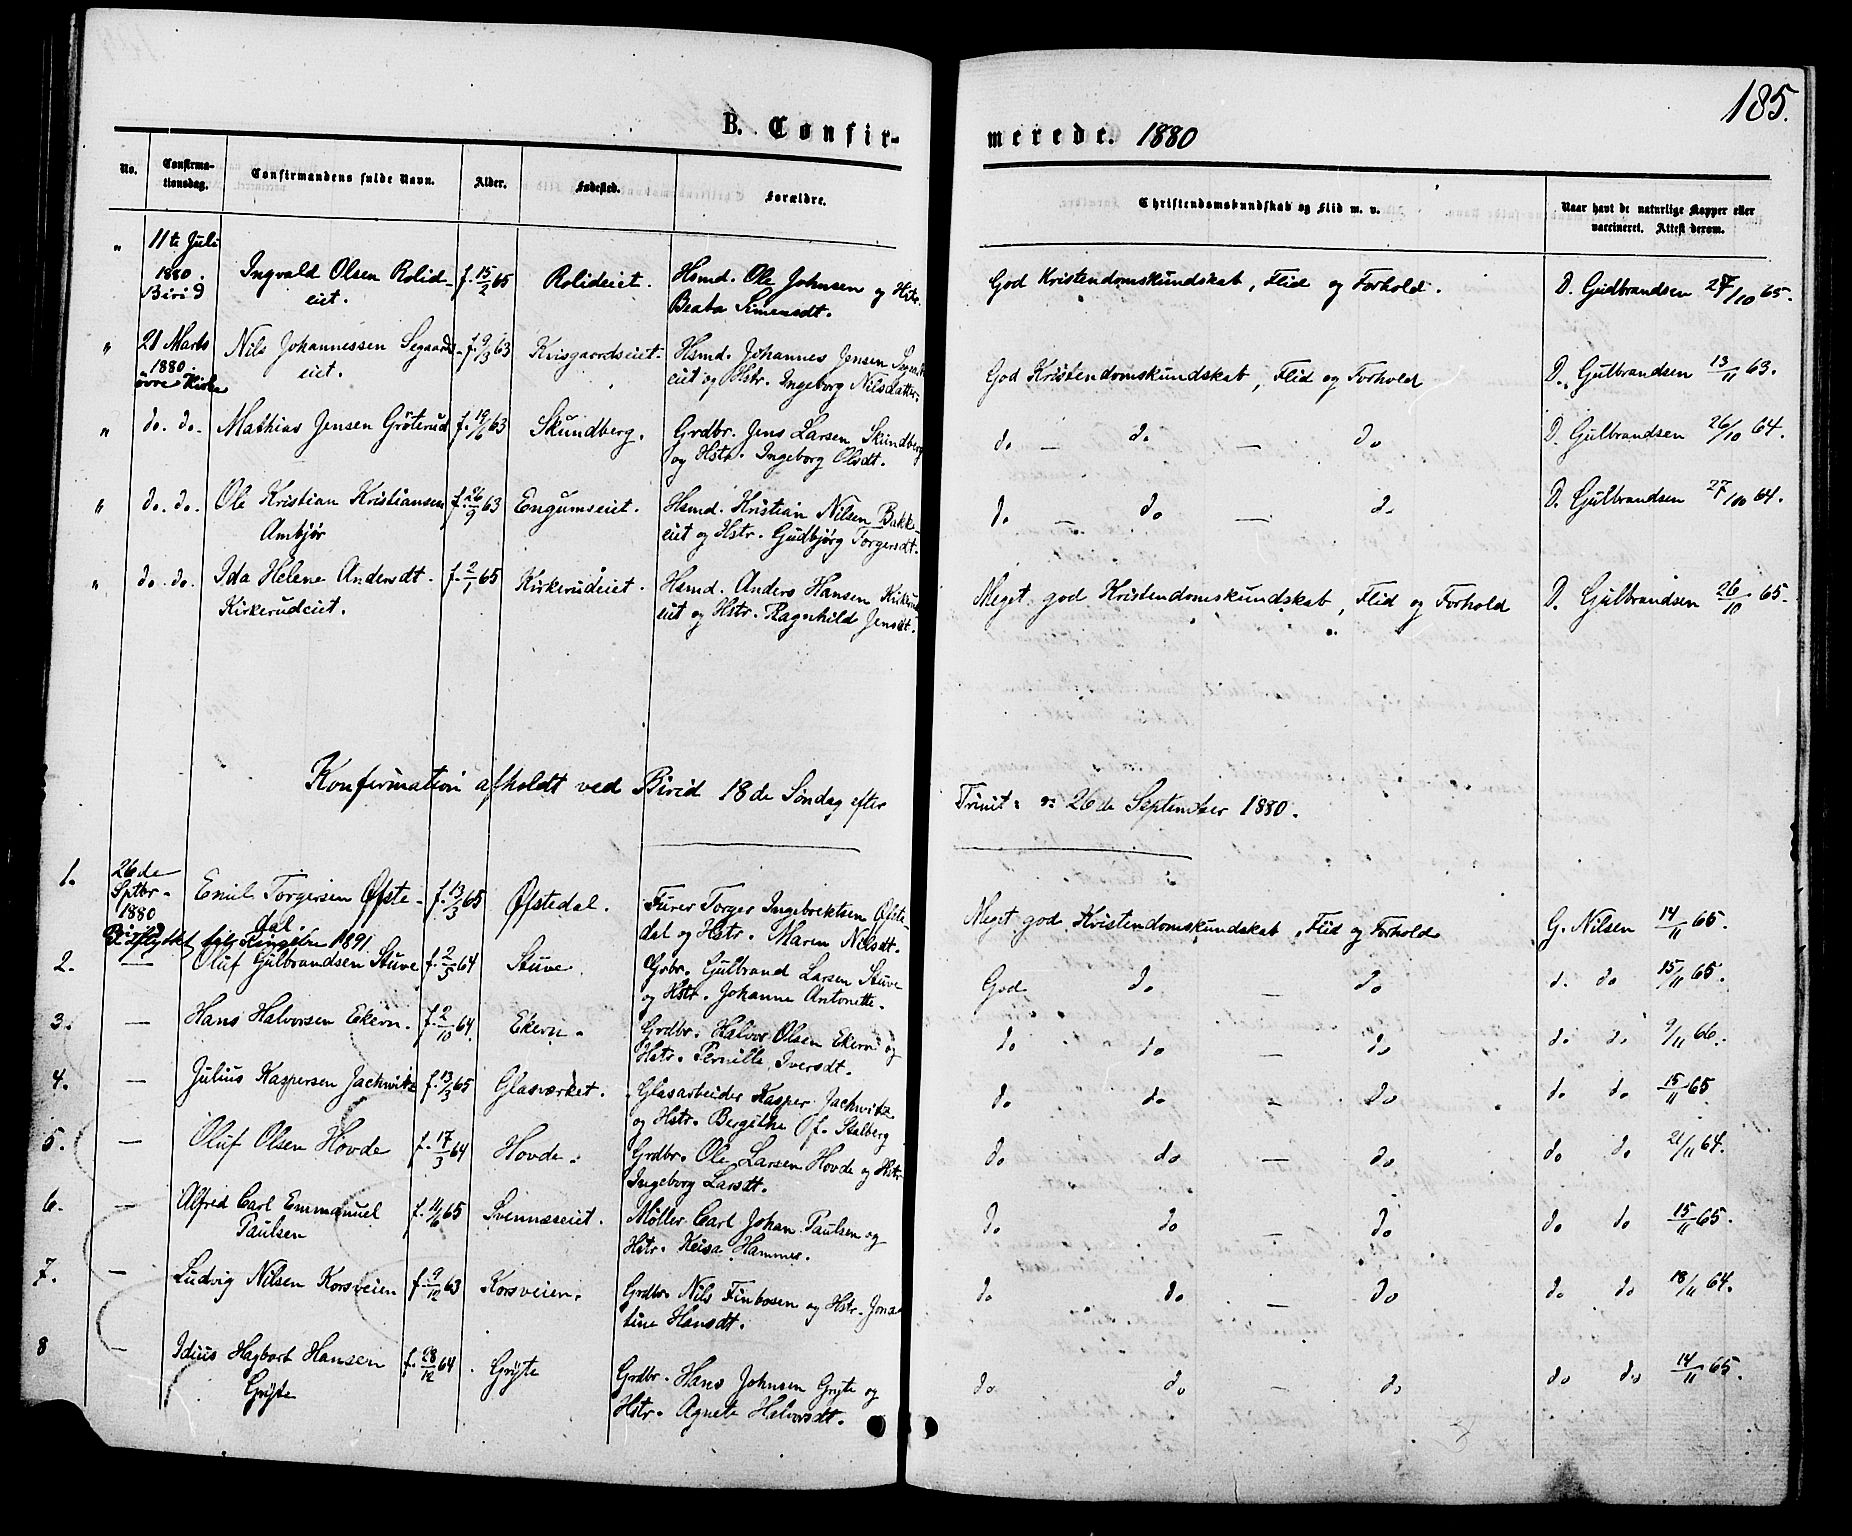 185.
B. Confirmerede. 1880
No. Confirmationsdag. Confirmandens fulde Navn. Alder. Fødested. Forældre. Christendomskundskab og Flid m. v. Naar havt de naturlige Kopper eller vaccineret. Attest derom.
" 11te Juli 1880. Birid Ingvald Olsen Rolideiet. f. 15/2 65 Rolideiet. Hsmd. Ole Johnsen og Hstr. Beata Simensdt. God Kristendomskundskab, Flid og Forhold. D. Gudbrandsen 27/10 65.
" 21 Marts 1880. övre Kirke Nils Johannessen Segaardseiet. f. 9/3 63 Kvisgaardseiet. Hsmd. Johannes Jensen eiet og Hstr. Ingeborg Nilsdatter. God Kristendomskundskab, Flid og Forhold D. Gulbrandsen 13/11 63.
" do. do. Mathias Jensen Gröterud f. 19/6 63 Skundberg. Grdbr. Jens Larsen Skundberg og Hstr. Ingeborg Olsdt. do — do — do D. Gulbrandsen 26/10 64.
" do. do. Ole Kristian Kristiansen Ambjør f. 26/9 63 Engumseiet. Hsmd. Kristian Nilsen Bakkeeiet og Hstr. Gudbjørg Torgersdt. do — do — do D. Gulbrandsen 27/10 64.
" do. do. Ida Helene Andersdt. Kirkerudeiet. f. 2/1 65 Kirkerudeiet. Hsmd. Anders Hansen Kirkerudeiet og Hstr. Ragnhild Jensdt. Meget god Kristendomskundskab, Flid og Forhold D. Gulbrandsen 26/10 65.
Konfirmation afholdt ved Birid 18de Søndag efter Trinit: ɔ: 26de September 1880.
1. 26de Sptbr. 1880 Birid Emil Torgersen Øfstedal. f. 13/3 65 Øfstedal. Furer Torger Ingebrektsen Øfstedal og Hstr. Maren Nilsdt. Meget god Kristendomskundskab, Flid og Forhold G. Nilsen 14/11 65.
Udflyttet til Ringebu 1891
2. — Oluf Gulbrandsen Stuve f. 2/5 64 Stuve. Grbr. Gulbrand Larsen Stuve og Hstr. Johanne Antonette. God do — do d. do 15/11 65.
3. — Hans Halvorsen Ekern. f. 2/10 64. Ekern. Grdbr. Halvor Olsen Ekern og Hstr. Pernille Iversdt. do do — do do do 9/11 66.
4. — Julius Kaspersen Jachwitz f. 13/3 65 Glasværket. Glasarbeider Kasper Jachwitz og Hstr. Bergithe f. Stalberg do do — do do do 15/11 65
5. — Oluf Olsen Hovde f. 17/3 64 Hovde. Grdbr. Ole Larsen Hovde og Hstr. Ingeborg Larsdt. do do — do do do 21/11 64.
6. — Alfred Carl Emmanuel Paulsen f. 11/6 65 Svennæseiet. Møller Carl Johan Paulsen og Hstr. Keisa Hammer. do do — do do do 15/11 65.
7. — Ludvig Nilsen Korsveien f. 9/12 63 Korsveien. Grdbr. Nils Finbosen og Hstr. Jonetine Hansdt. do do — do do do 18/11 64.
8 — Idius Hagbart Hansen Gryte f. 28/12 64 Gryte Grdbr. Hans Johnsen Gryte og Hstr. Agnete Halvorsdt. do do — do do do 14/11 65.